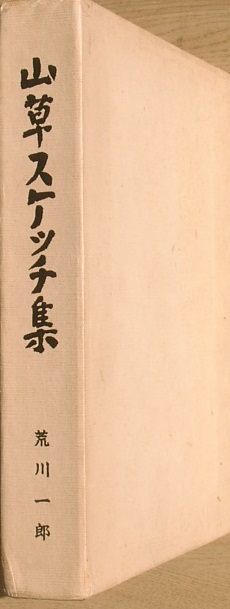 山草スケッチ集
荒川一郎